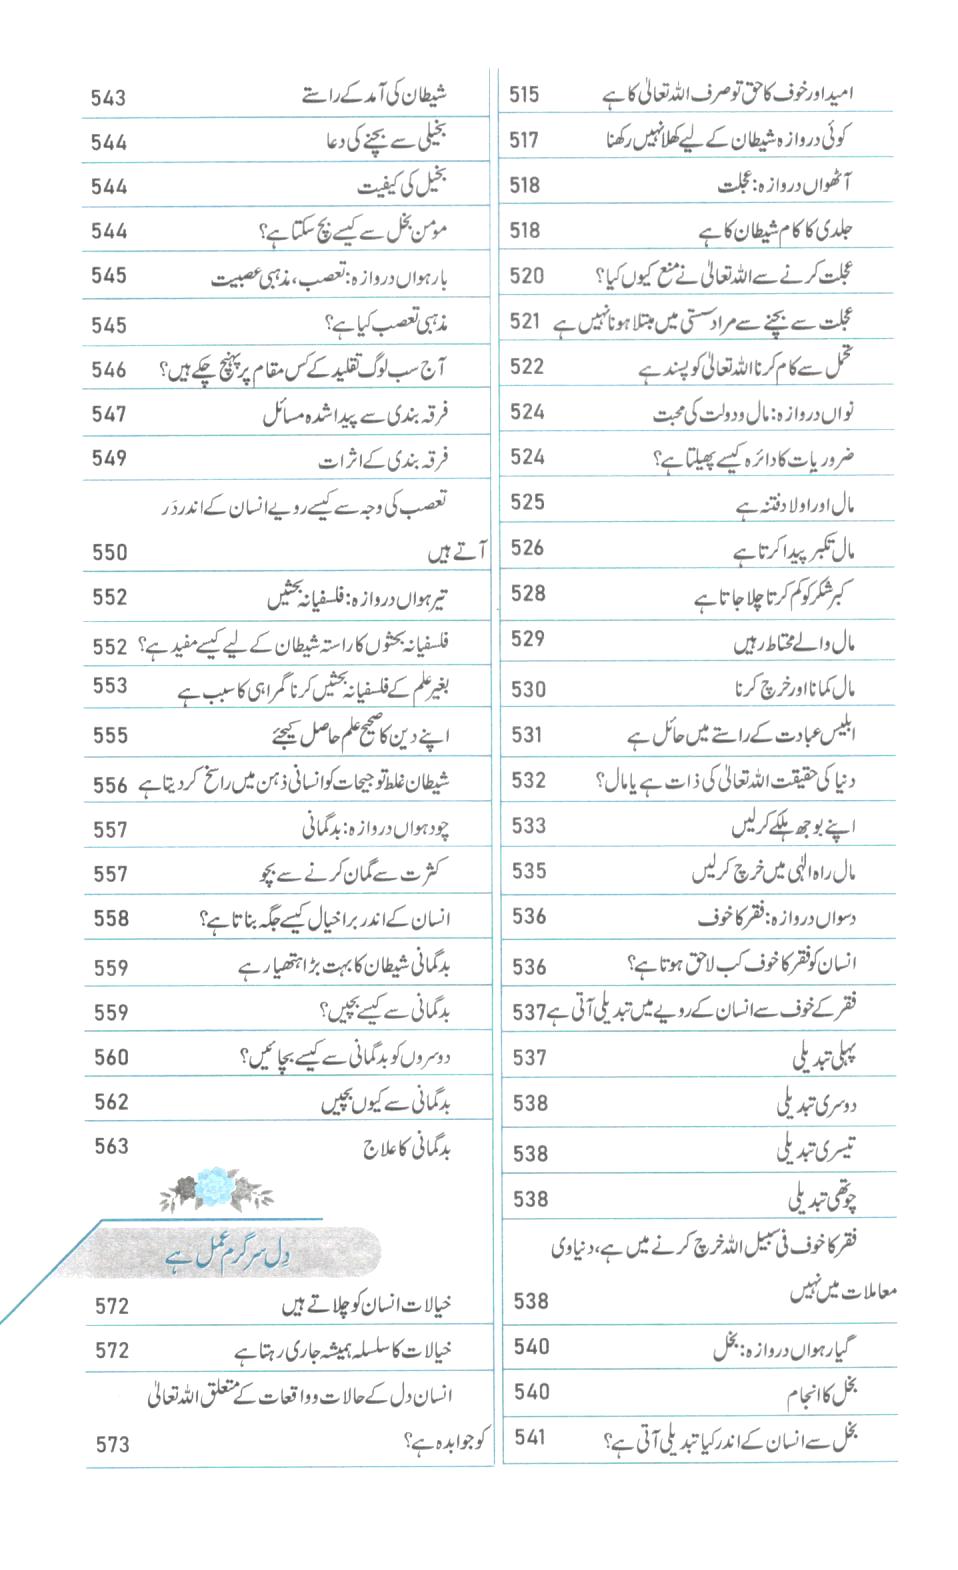 امید اور خوف کا حق تو صرف اللہ تعالیٰ کا ہے 515
کوئی دروازہ شیطان کے لیے کھلا نہیں رکھنا 517
آٹھواں دروازہ: عجلت 518
جلدی کا کام شیطان کا ہے 518
عجلت کرنے سے اللہ تعالیٰ نے منع کیوں کیا؟ 520
عجلت سے بچنے سے مراد سستی میں مبتلا ہونا نہیں ہے 521
تحمل سے کام کرنا اللہ تعالیٰ کو پسند ہے 522
نواں دروازہ: مال و دولت کی محبت 524
ضروریات کا دائرہ کیسے پھیلتا ہے؟ 524
مال اور اولاد فتنہ ہے 525
مال تکبر پیدا کرتا ہے 526
کبر شکر کو کم کرتا چلا جاتا ہے 528
مال والے محتاط رہیں 529
مال کمانا اور خرچ کرنا 530
ابلیس عبادت کے راستے میں حائل ہے 531
دنیا کی حقیقت اللہ تعالیٰ کی ذات ہے یا مال؟ 532
اپنے بوجھ ہلکے کر لیں 533
مال راہ الٰہی میں خرچ کر لیں 535
دسواں دروازہ: فقر کا خوف 536
انسان کو فقر کا خوف کب لاحق ہوتا ہے؟ 536
فقر کے خوف سے انسان کے رویے میں تبدیلی آتی ہے 537
پہلی تبدیلی 537
دوسری تبدیلی 538
تیسری تبدیلی 538
چوتھی تبدیلی 538
فقر کا خوف فی سبیل اللہ خرچ کرنے میں ہے، دنیاوی
معاملات میں نہیں 538
گیارہواں دروازہ: بخل 540
بخل کا انجام 540
بخل سے انسان کے اندر کیا تبدیلی آتی ہے؟ 541
شیطان کی آمد کے راستے 543
بخیلی سے بچنے کی دعا 544
بخیل کی کیفیت 544
مؤمن بخل سے کیسے بچ سکتا ہے؟ 544
بارہواں دروازہ: تعصب، مذہبی عصبیت 545
مذہبی تعصب کیا ہے؟ 545
آج سب لوگ تقلید کے کس مقام پر پہنچ چکے ہیں؟ 546
فرقہ بندی سے پیدا شدہ مسائل 547
فرقہ بندی کے اثرات 549
تعصب کی وجہ سے کیسے رویے انسان کے اندر دَر
آتے ہیں 550
تیرہواں دروازہ: فلسفیانہ بحثیں 552
فلسفیانہ بحثوں کا راستہ شیطان کے لیے کیسے مفید ہے؟ 552
بغیر علم کے فلسفیانہ بحثیں کرنا گمراہی کا سبب ہے 553
اپنے دین کا صحیح علم حاصل کیجئے 555
شیطان غلط توجیحات کو انسانی ذہن میں راسخ کر دیتا ہے 556
چودہواں دروازہ: بدگمانی 557
کثرت سے گمان کرنے سے بچو 557
انسان کے اندر برا خیال کیسے جگہ بناتا ہے؟ 558
بدگمانی شیطان کا بہت بڑا ہتھیار ہے 559
بدگمانی سے کیسے بچیں؟ 559
دوسروں کو بدگمانی سے کیسے بچائیں؟ 560
بدگمانی سے کیوں بچیں 562
بدگمانی کا علاج 563
دِل سرگرم عمل ہے
خیالات انسان کو چلاتے ہیں 572
خیالات کا سلسلہ ہمیشہ جاری رہتا ہے 572
انسان دل کے حالات و واقعات کے متعلق اللہ تعالیٰ
کو جوابدہ ہے؟ 573